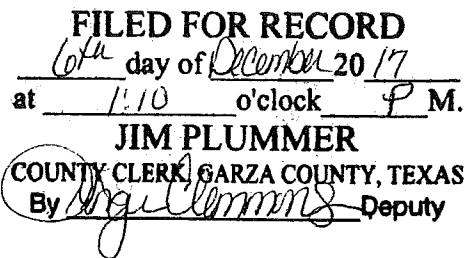 FILED FOR RECORD
6th day of December 20 17
at 1:10 o'clock P M.
JIM PLUMMER
COUNTY CLERK, GARZA COUNTY, TEXAS
By Angie Clemmons Deputy